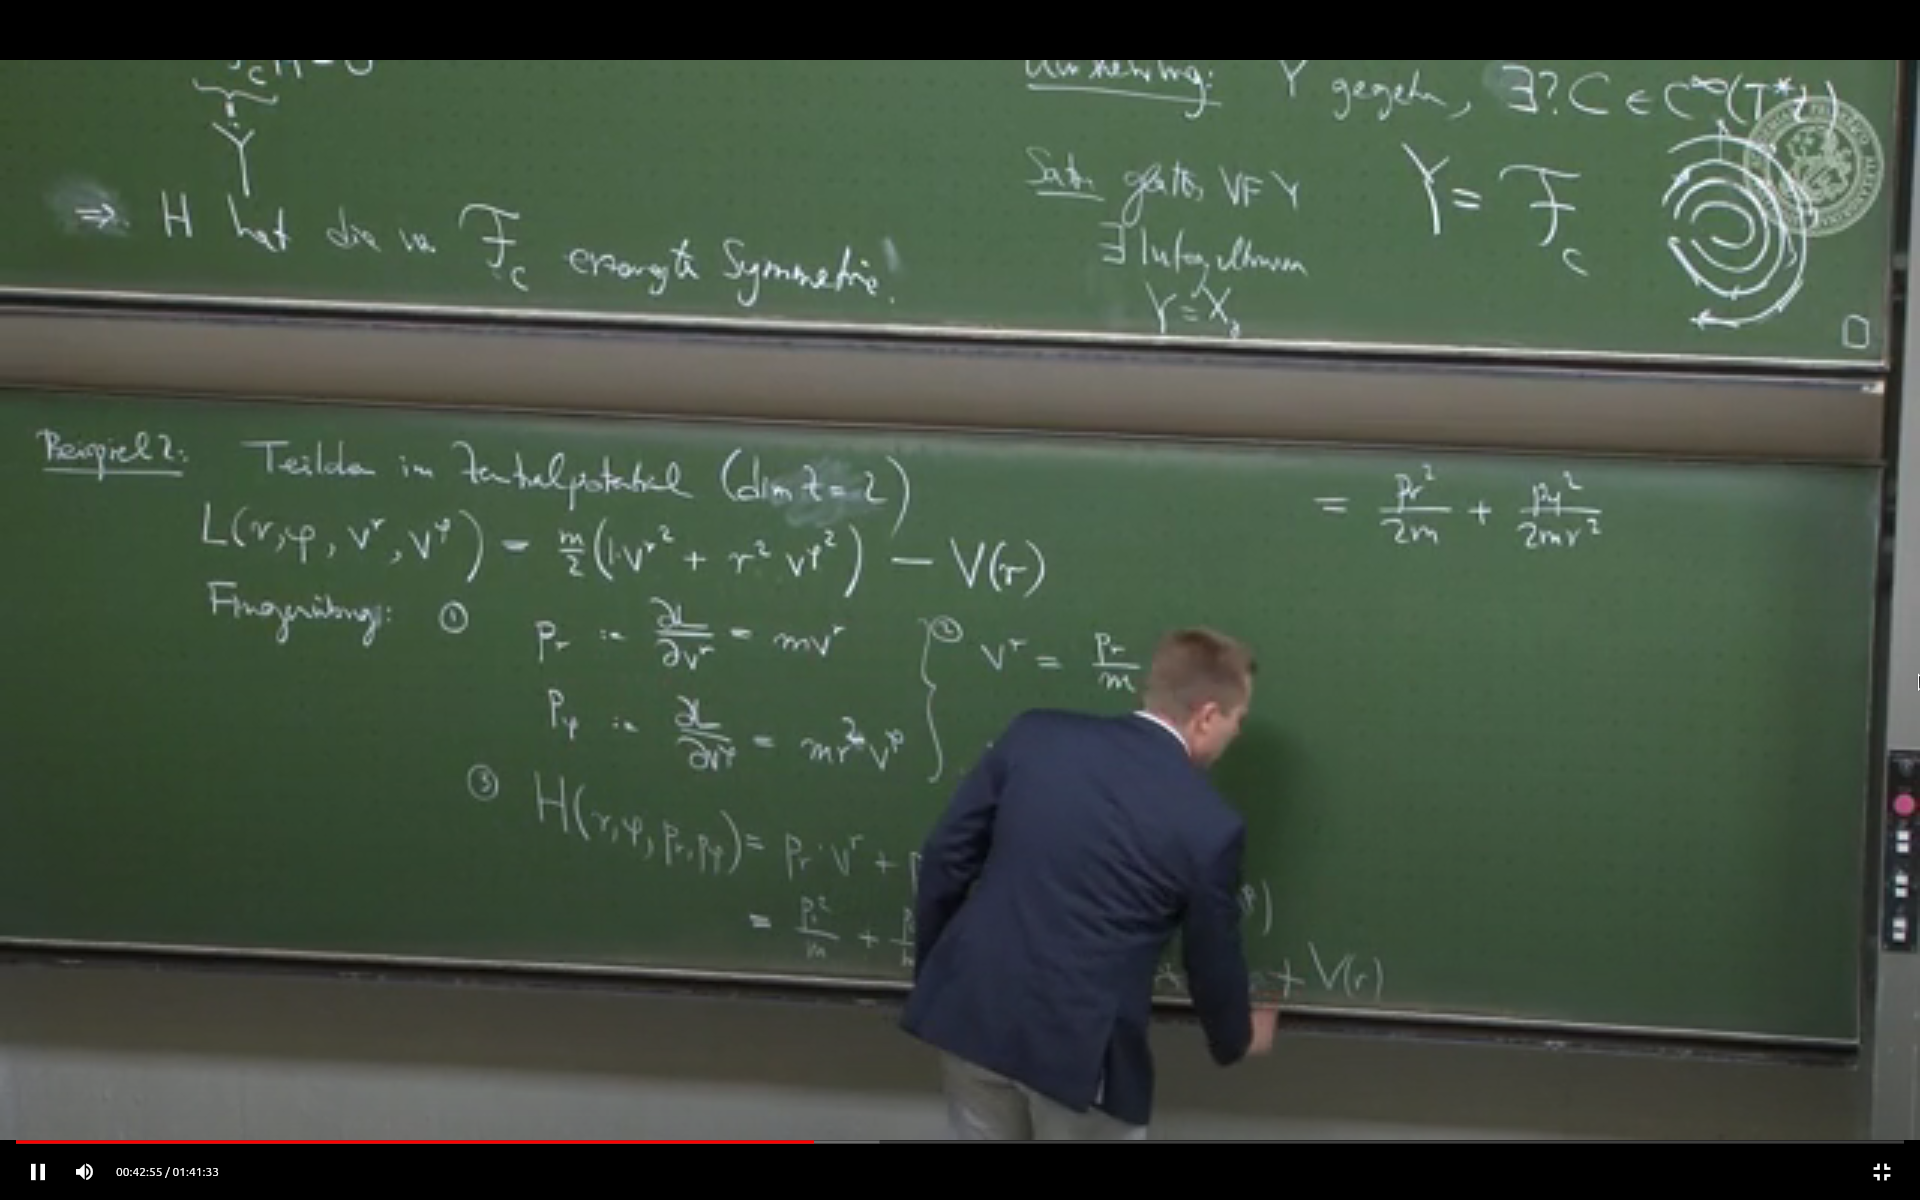 Y
⇒ H hat die von F_C erzeugte Symmetrie!
Umkehrung: Y gegeben, ∃? C ∈ C^∞(T*Z)
Satz: glattes VF Y
Y = F_C
∃ Integralkurven
Y = X_γ
Beispiel 2: Teilchen im Zentralpotential (dim Z = 2)
L(r, φ, v^r, v^φ) = m/2 (1·v^r² + r² v^φ²) − V(r)
Fingerübung: ① p_r := ∂L/∂v^r = mv^r
p_φ := ∂L/∂v^φ = mr² v^φ
② v^r = p_r/m
③ H(r, φ, p_r, p_φ) = p_r · v^r +
= p_r²/m +
+ V(r)
= p_r²/2m + p_φ²/2mr²
00:42:55 / 01:41:33